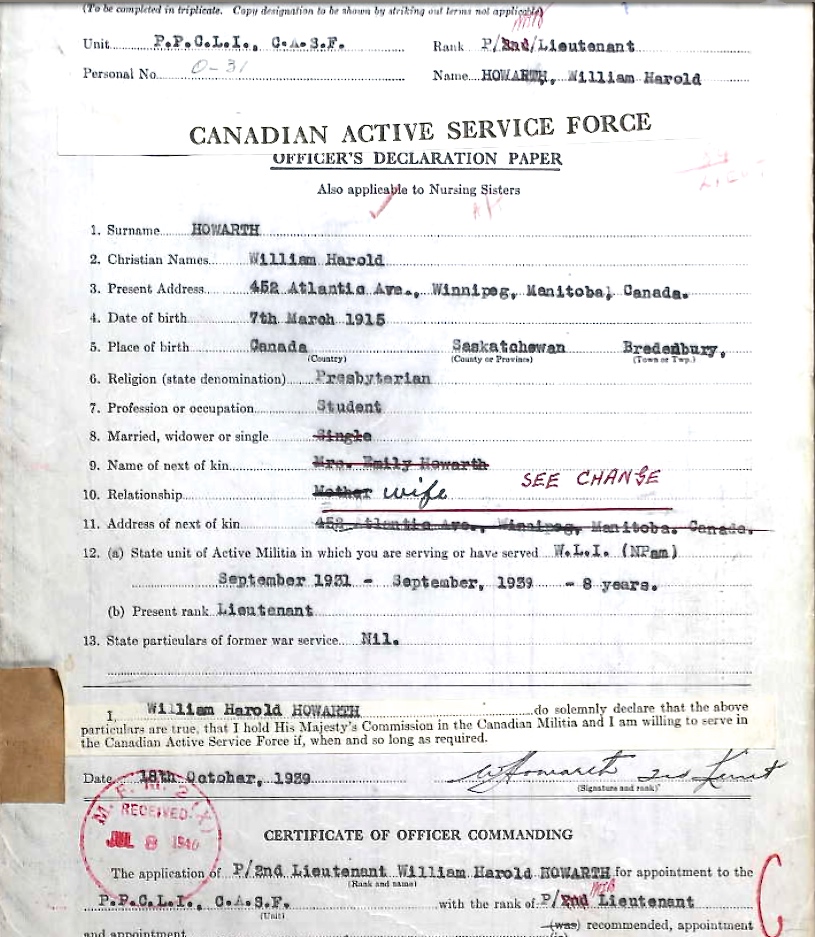 (To be completed in triplicate. Copy designation to be shown by striking out terms not applicable)
Unit P.P.C.L.I., C.A.S.F. Rank P/2nd/Lieutenant
Personal No. O-31 Name HOWARTH, William Harold
CANADIAN ACTIVE SERVICE FORCE
OFFICER'S DECLARATION PAPER
Also applicable to Nursing Sisters
1. Surname HOWARTH
2. Christian Names William Harold
3. Present Address 452 Atlantic Ave., Winnipeg, Manitoba, Canada.
4. Date of birth 7th March 1915
5. Place of birth Canada Saskatchewan Bredenbury,
(Country) (County or Province) (Town or Twp.)
6. Religion (state denomination) Presbyterian
7. Profession or occupation Student
8. Married, widower or single Single
9. Name of next of kin Mrs. Emily Howarth
SEE CHANGE
10. Relationship Mother wife
11. Address of next of kin 452 Atlantic Ave., Winnipeg, Manitoba. Canada.
12. (a) State unit of Active Militia in which you are serving or have served W.L.I. (NPam)
September 1931 - September, 1939 - 8 years.
(b) Present rank Lieutenant
13. State particulars of former war service Nil.
I, William Harold HOWARTH do solemnly declare that the above
particulars are true, that I hold His Majesty's Commission in the Canadian Militia and I am willing to serve in
the Canadian Active Service Force if, when and so long as required.
Date 18th October, 1939 WHowarth 2nd Lieut
(Signature and rank)
RECEIVED
JUL 8 1940
CERTIFICATE OF OFFICER COMMANDING
The application of P/2nd Lieutenant William Harold HOWARTH for appointment to the
(Rank and name)
P.P.C.L.I., C.A.S.F. with the rank of P/2nd Lieutenant
(Unit)
(was) recommended, appointment
and appointment